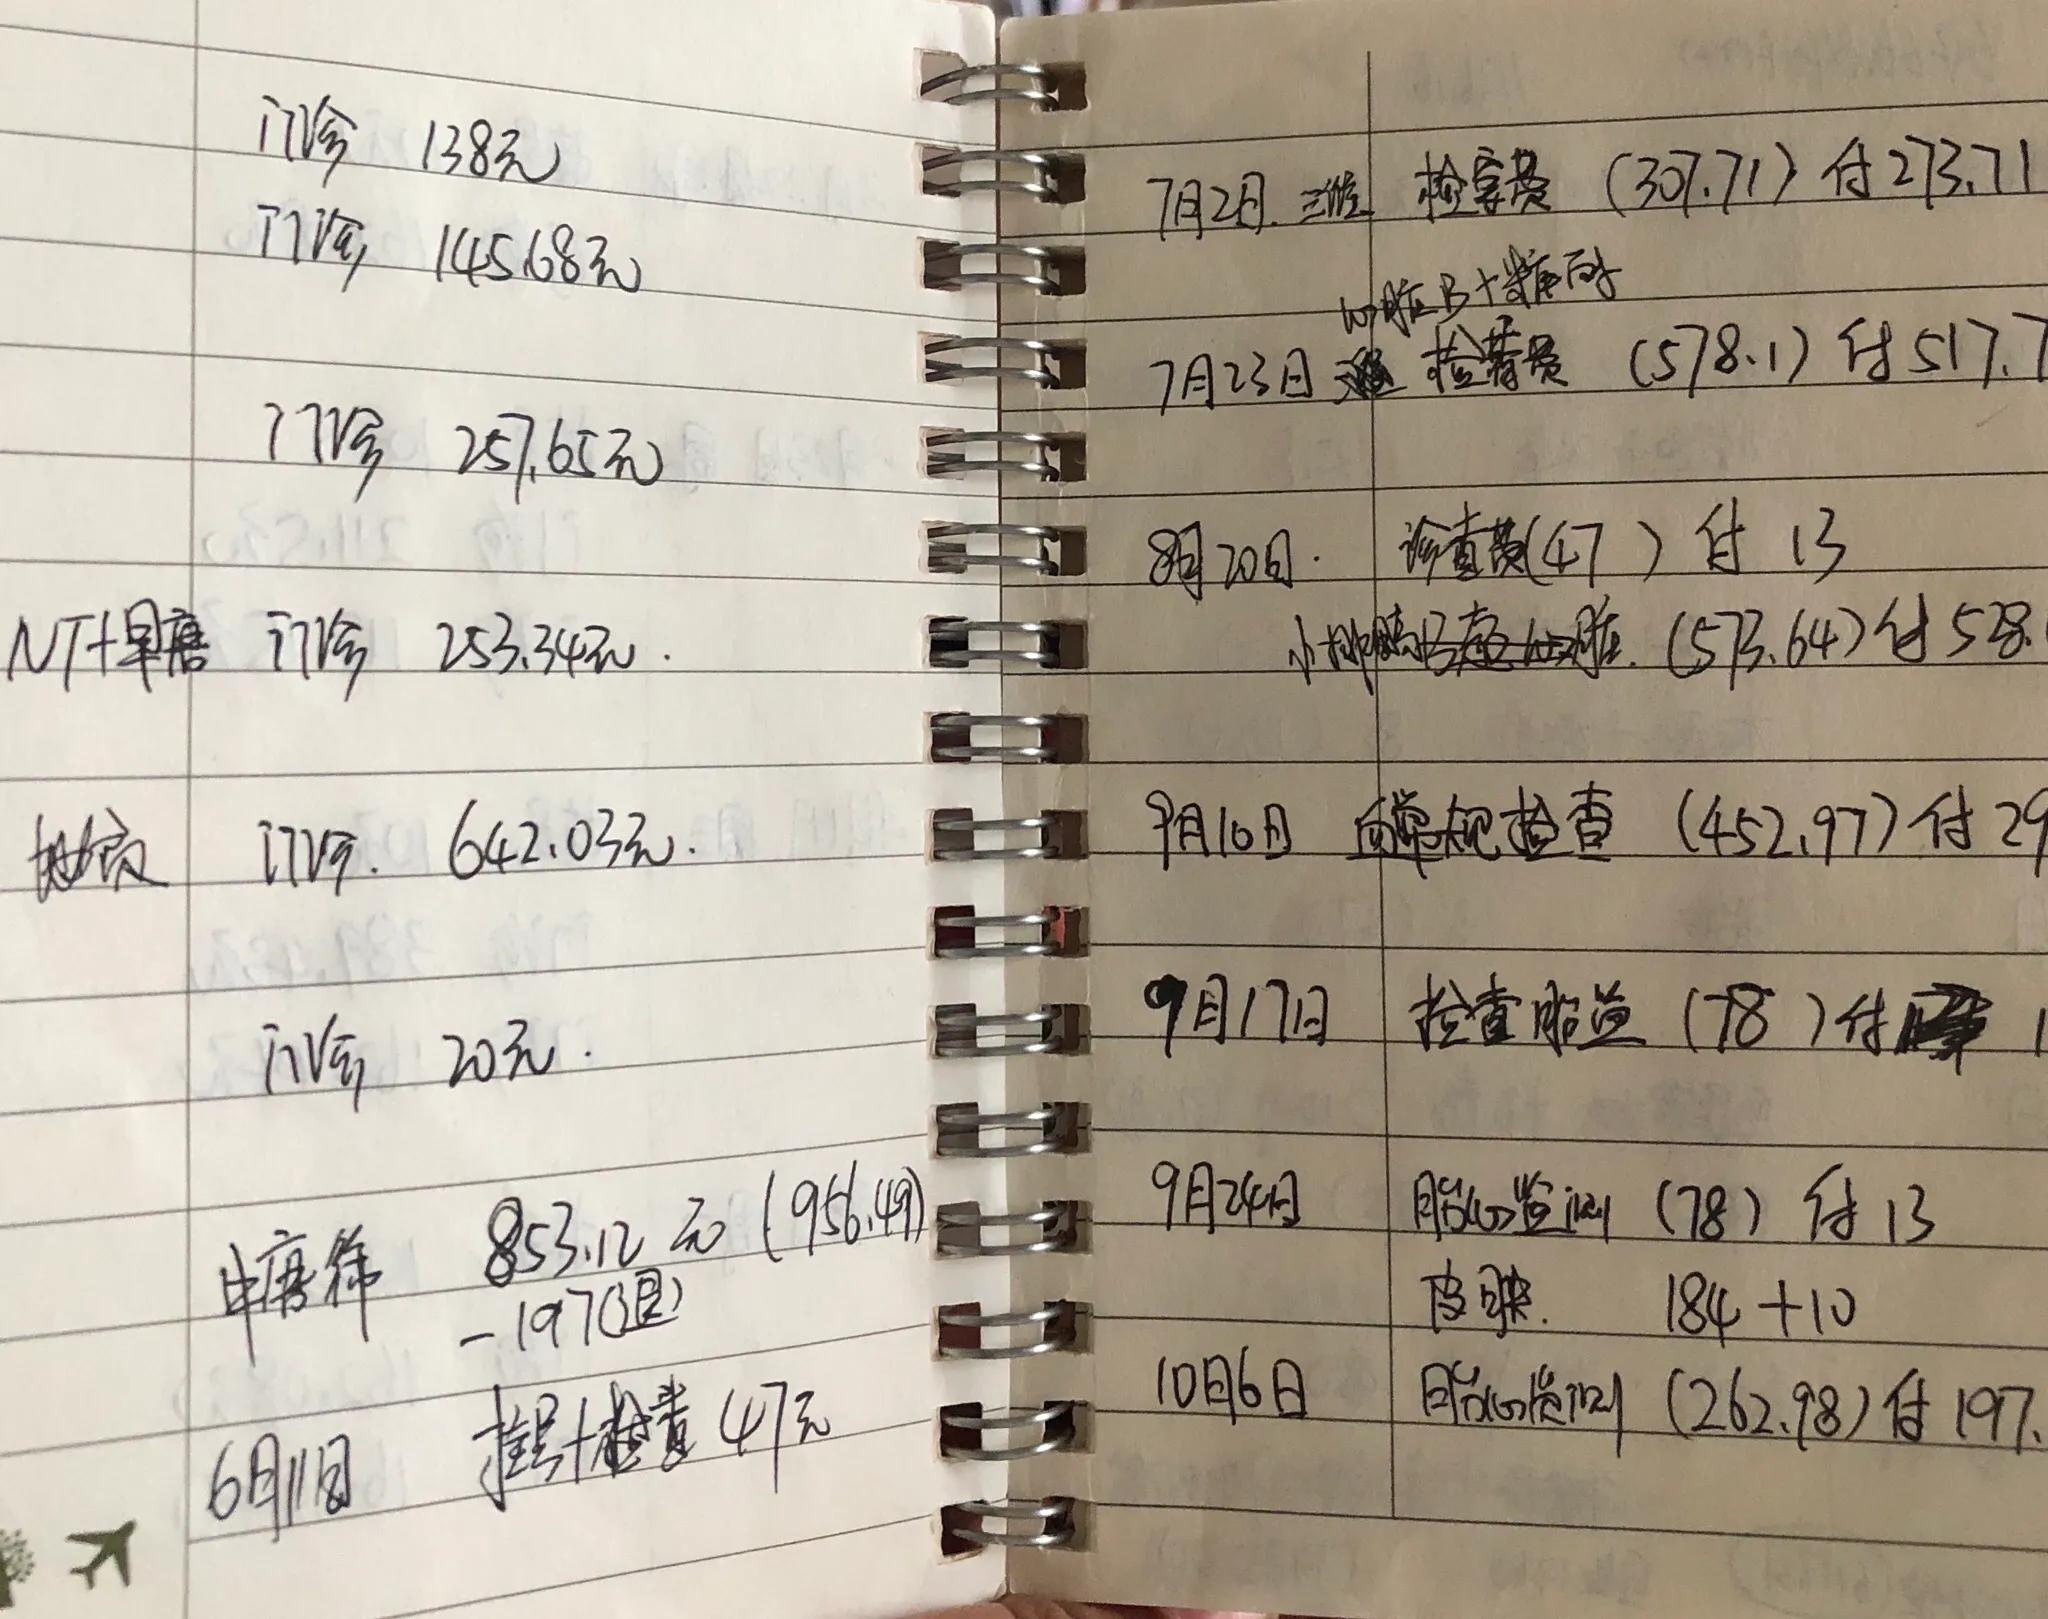 门诊 138元
门诊 145.68元
门诊 257.65元
NT+早唐 门诊 253.34元.
门诊. 642.03元.
门诊 20元.
中唐筛 853.12元 (956.49)
-197(退)
6月11日 挂号+检查 47元
7月2日. 三维 检查费 (307.71) 付273.71
心脏B+糖耐
7月23日 检查费 (578.1) 付517.7
8月20日. 诊查费(47) 付 13
小排畸B超 心脏. (573.64) 付528.
9月10日 血常规检查 (452.97) 付29
9月17日 检查胎监 (78) 付 1
9月24日 胎心监测 (78) 付 13
皮肤. 184+10
10月6日 胎心监测 (262.98) 付197.